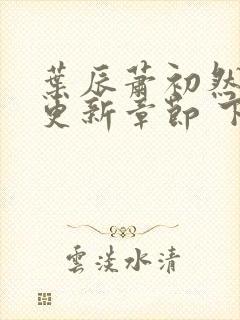 葉辰蕭初然
更新章節 下
雲淡水清